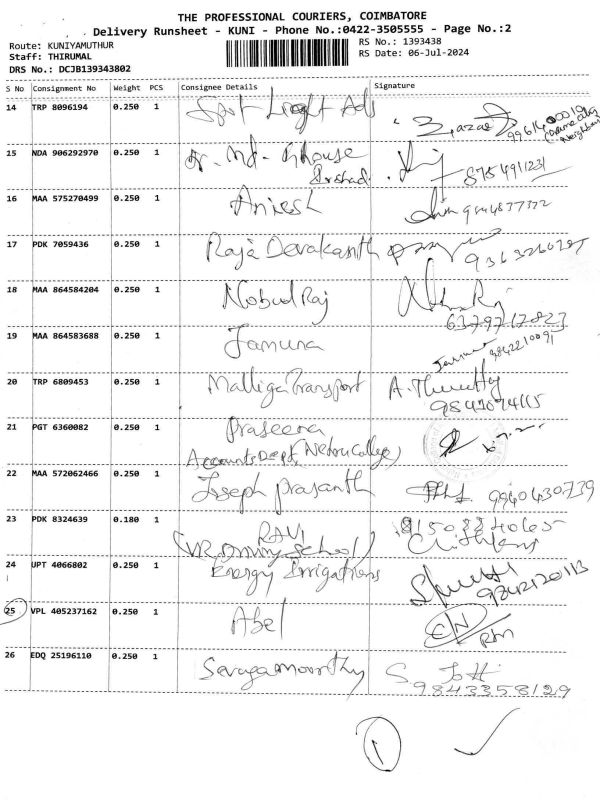 THE PROFESSIONAL COURIERS, COIMBATORE
Delivery Runsheet - KUNI - Phone No.:0422-3505555 - Page No.:2
Route: KUNIYAMUTHUR RS No.: 1393438
Staff: THIRUMAL RS Date: 06-Jul-2024
DRS No.: DCJB139343802
S No Consignment No Weight PCS Consignee Details Signature
14 TRP 8096194 0.250 1 Spot Light Ads
15 NDA 906292970 0.250 1
Arshad
16 MAA 575270499 0.250 1 Aniesh
17 PDK 7059436 0.250 1 Raja Devakanth
18 MAA 864584204 0.250 1 Nobul Raj
6379717823
19 MAA 864583688 0.250 1 Jamuna 9842210091
20 TRP 6809453 0.250 1 Malliga Transport
9843094115
21 PGT 6360082 0.250 1 Praseena
Accounts Dept, Nehru College
22 MAA 572062466 0.250 1 Joseph Prasanth 9940430739
23 PDK 8324639 0.180 1 RAVI
(VR Driving School)
24 UPT 4066802 0.250 1 Energy Irrigations
9842120113
25 VPL 405237162 0.250 1 Abel
26 EDQ 25196110 0.250 1 S. Jothi
9843358129
1